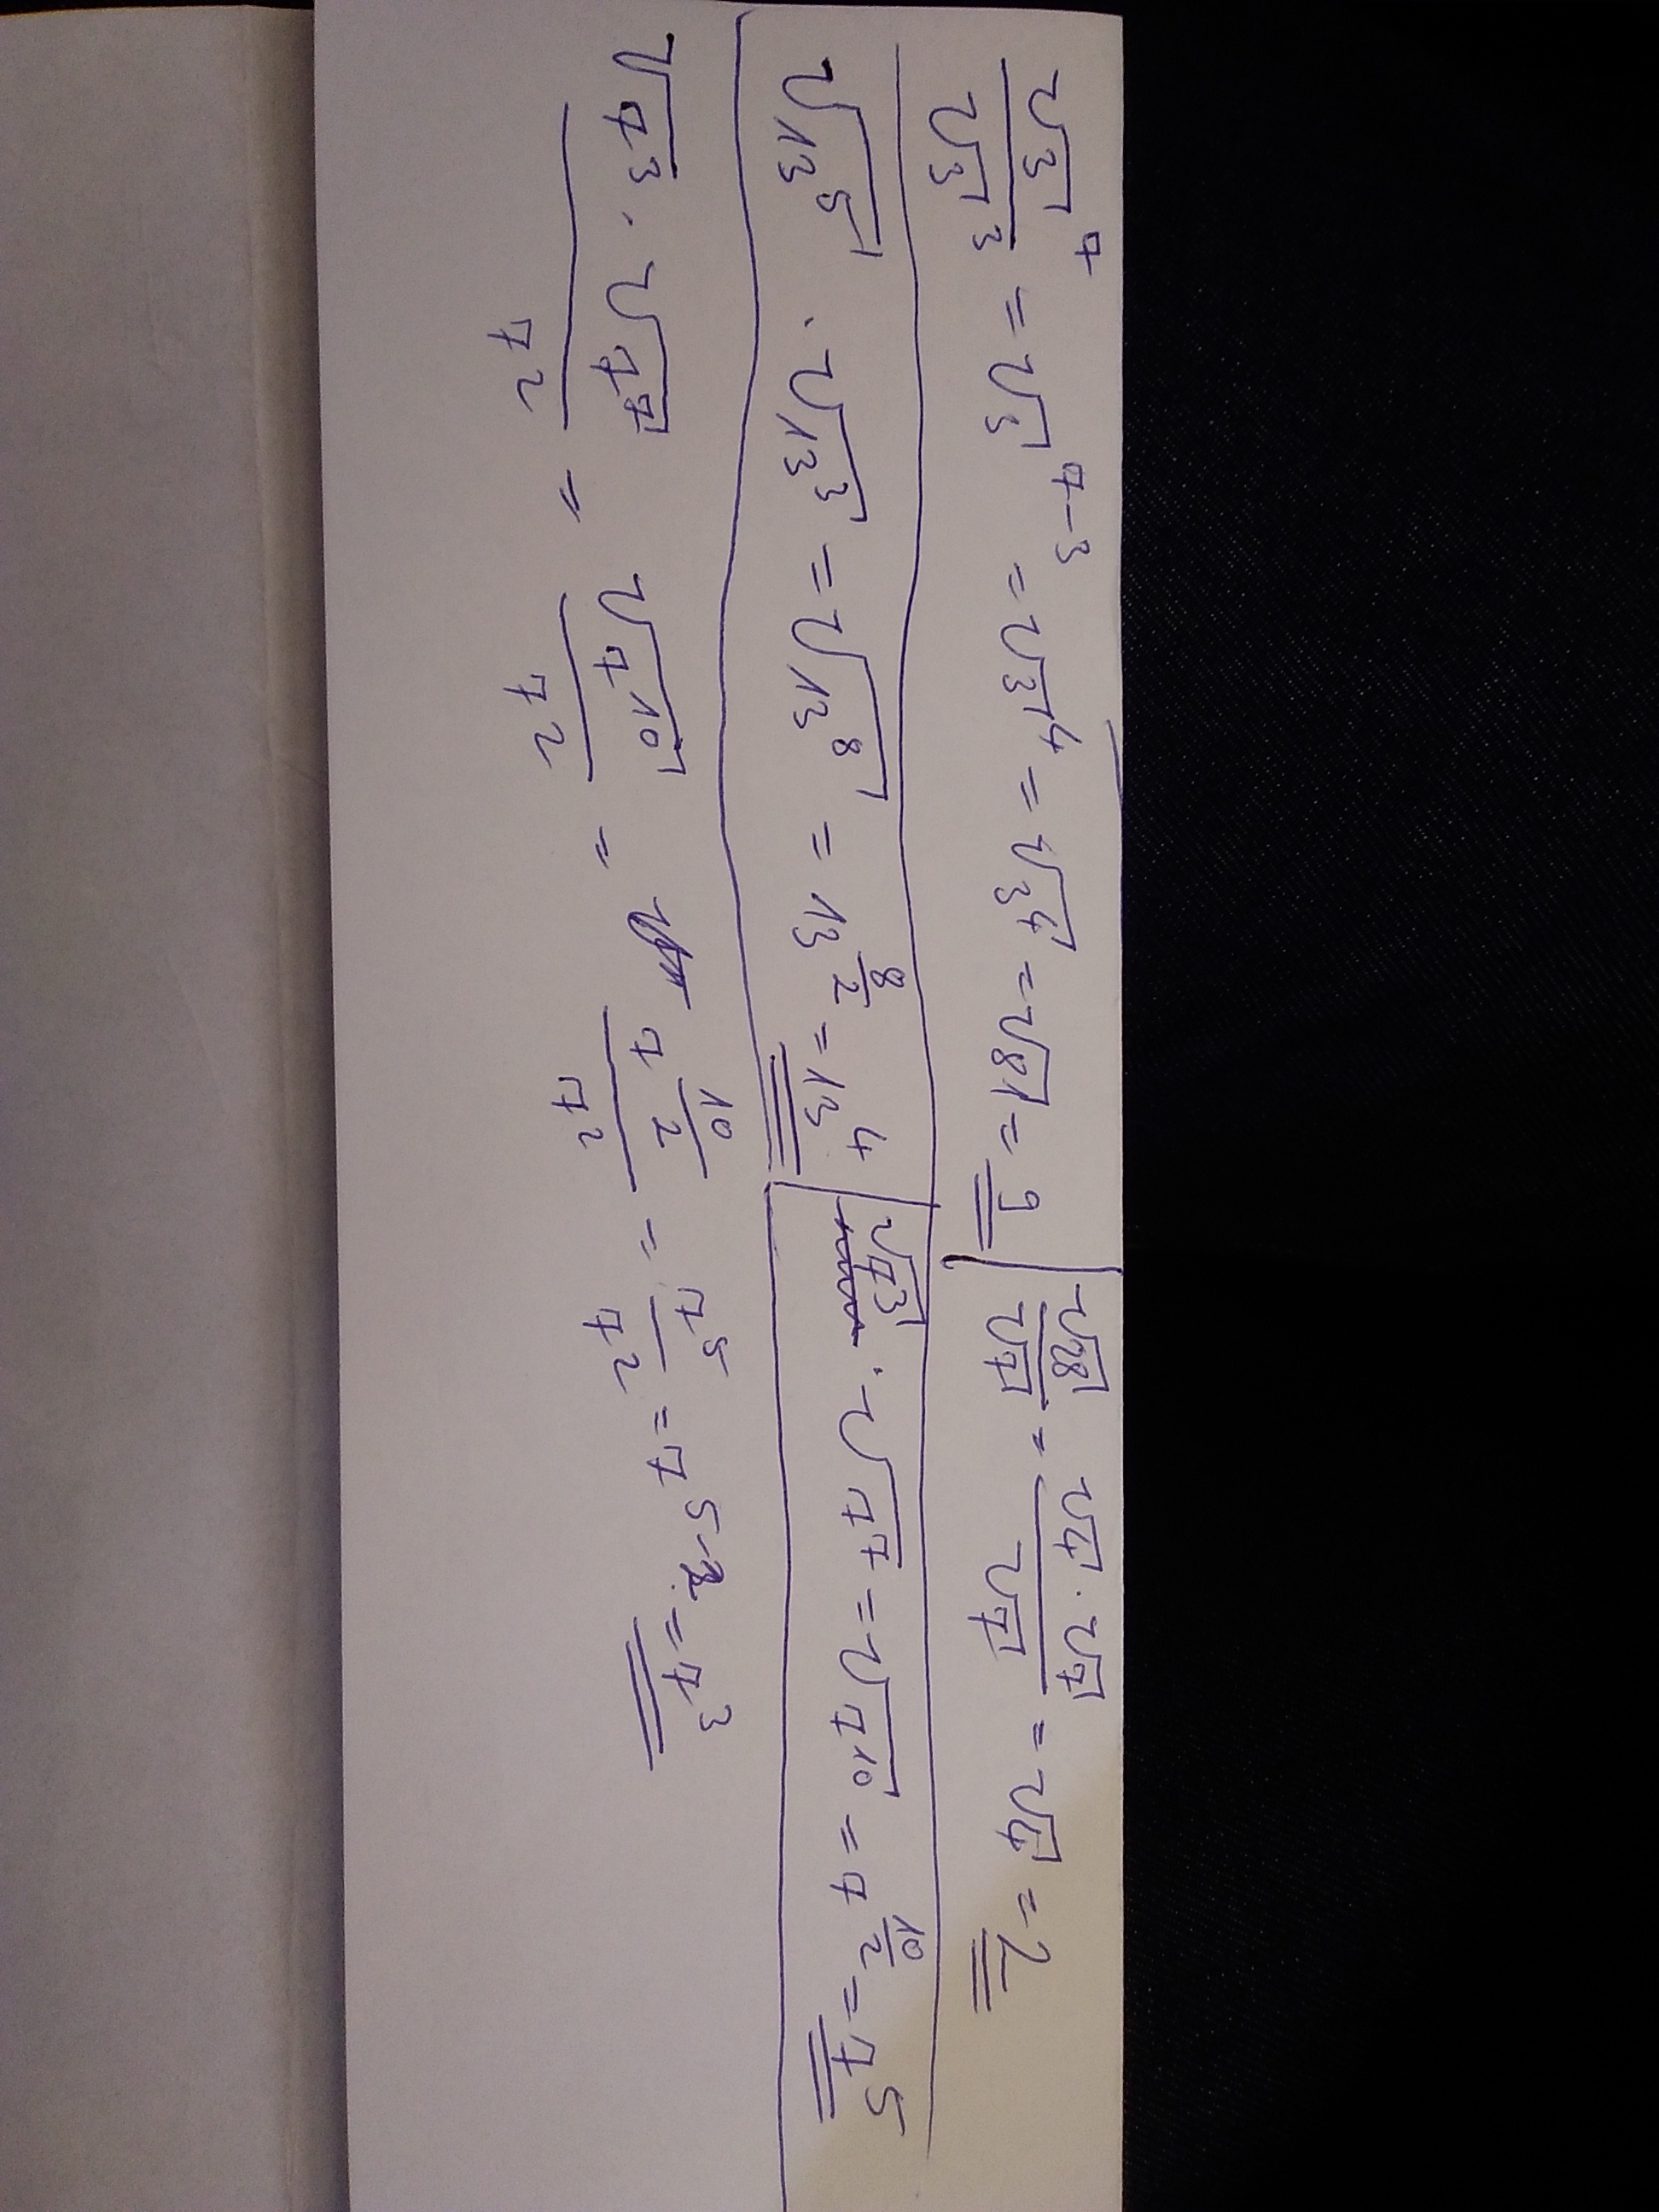 √3⁷/√3³ = √3⁷⁻³ = √3⁴ = √3⁴ = √81 = 9 | √28/√7 = √4·√7/√7 = √4 = 2
√13⁵ · √13³ = √13⁸ = 13^(8/2) = 13⁴ | √7³ · √7⁷ = √7¹⁰ = 7^(10/2) = 7⁵
√7³ · √7⁷/7² = √7¹⁰/7² = 7^(10/2)/7² = 7⁵/7² = 7⁵⁻² = 7³